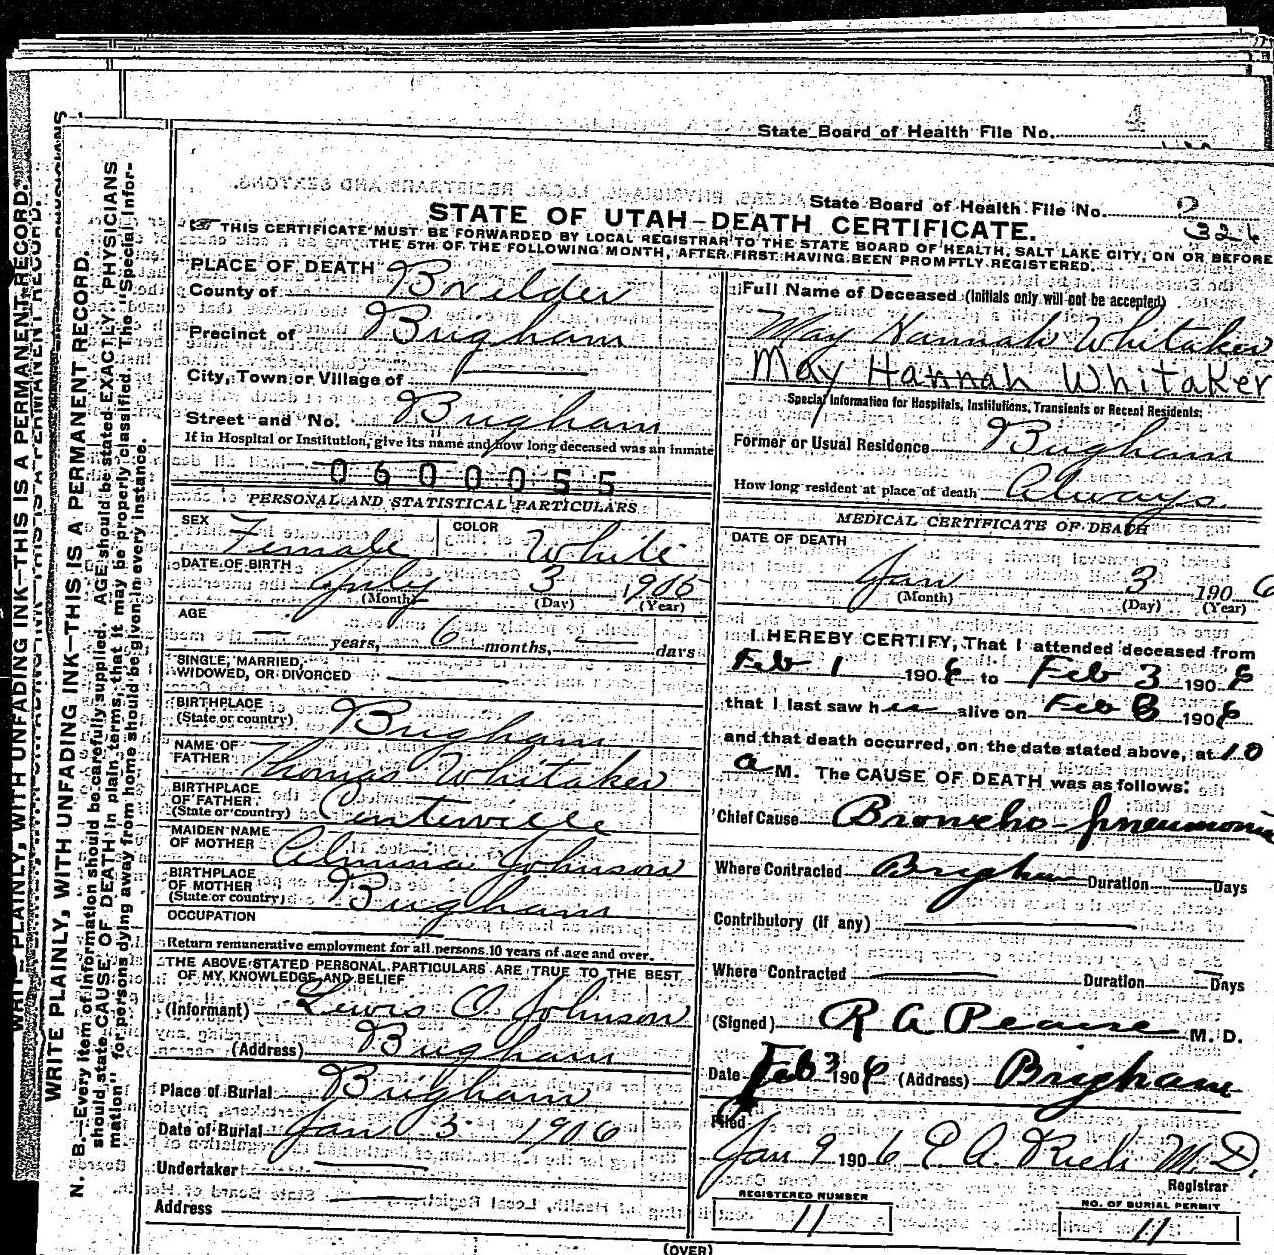 State Board of Health File No. 4
State Board of Health File No. 2
326
STATE OF UTAH—DEATH CERTIFICATE.
THIS CERTIFICATE MUST BE FORWARDED BY LOCAL REGISTRAR TO THE STATE BOARD OF HEALTH, SALT LAKE CITY, ON OR BEFORE
THE 5TH OF THE FOLLOWING MONTH, AFTER FIRST HAVING BEEN PROMPTLY REGISTERED.
WRITE PLAINLY, WITH UNFADING INK—THIS IS A PERMANENT RECORD.
WRITE PLAINLY, WITH UNFADING INK—THIS IS A PERMANENT RECORD.
N. B.—Every item of information should be carefully supplied. AGE should be stated EXACTLY. PHYSICIANS
should state CAUSE OF DEATH in plain terms, that it may be properly classified. The "Special Infor-
mation" for persons dying away from home should be given in every instance.
PLACE OF DEATH
County of Boxelder
Precinct of Brigham
City, Town or Village of
Street and No. Brigham
If in Hospital or Institution, give its name and how long deceased was an inmate
0600055
PERSONAL AND STATISTICAL PARTICULARS
SEX Female COLOR White
DATE OF BIRTH July 3 1905
(Month) (Day) (Year)
AGE — years, 6 months, — days
SINGLE, MARRIED,
WIDOWED, OR DIVORCED
BIRTHPLACE
(State or country) Brigham
NAME OF
FATHER Thomas Whitaker
BIRTHPLACE
OF FATHER
(State or country) Centerville
MAIDEN NAME
OF MOTHER Almina Johnson
BIRTHPLACE
OF MOTHER
(State or country) Brigham
OCCUPATION
Return remunerative employment for all persons 10 years of age and over.
THE ABOVE STATED PERSONAL PARTICULARS ARE TRUE TO THE BEST
OF MY KNOWLEDGE AND BELIEF
(Informant) Lewis O. Johnson
(Address) Brigham
Place of Burial Brigham
Date of Burial Jan 3 1906
Undertaker
Address
Full Name of Deceased (Initials only will not be accepted)
May Hannah Whitaker
May Hannah Whitaker
Special Information for Hospitals, Institutions, Transients or Recent Residents:
Former or Usual Residence Brigham
How long resident at place of death Always.
MEDICAL CERTIFICATE OF DEATH
DATE OF DEATH
Jan 3 1906
(Month) (Day) (Year)
I HEREBY CERTIFY, That I attended deceased from
Feb 1 1906 to Feb 3 1906
that I last saw her alive on Feb 3 1906
and that death occurred, on the date stated above, at 10
a M. The CAUSE OF DEATH was as follows:
Chief Cause Broncho-pneumonia
Where Contracted Brigham Duration — Days
Contributory (if any)
Where Contracted Duration — Days
(Signed) R A Pearse M. D.
Date Feb 3 1906 (Address) Brigham
Filed
Jan 9 1906 E A. Rich M.D.
Registrar
REGISTERED NUMBER
11
NO. OF BURIAL PERMIT
11
(OVER)